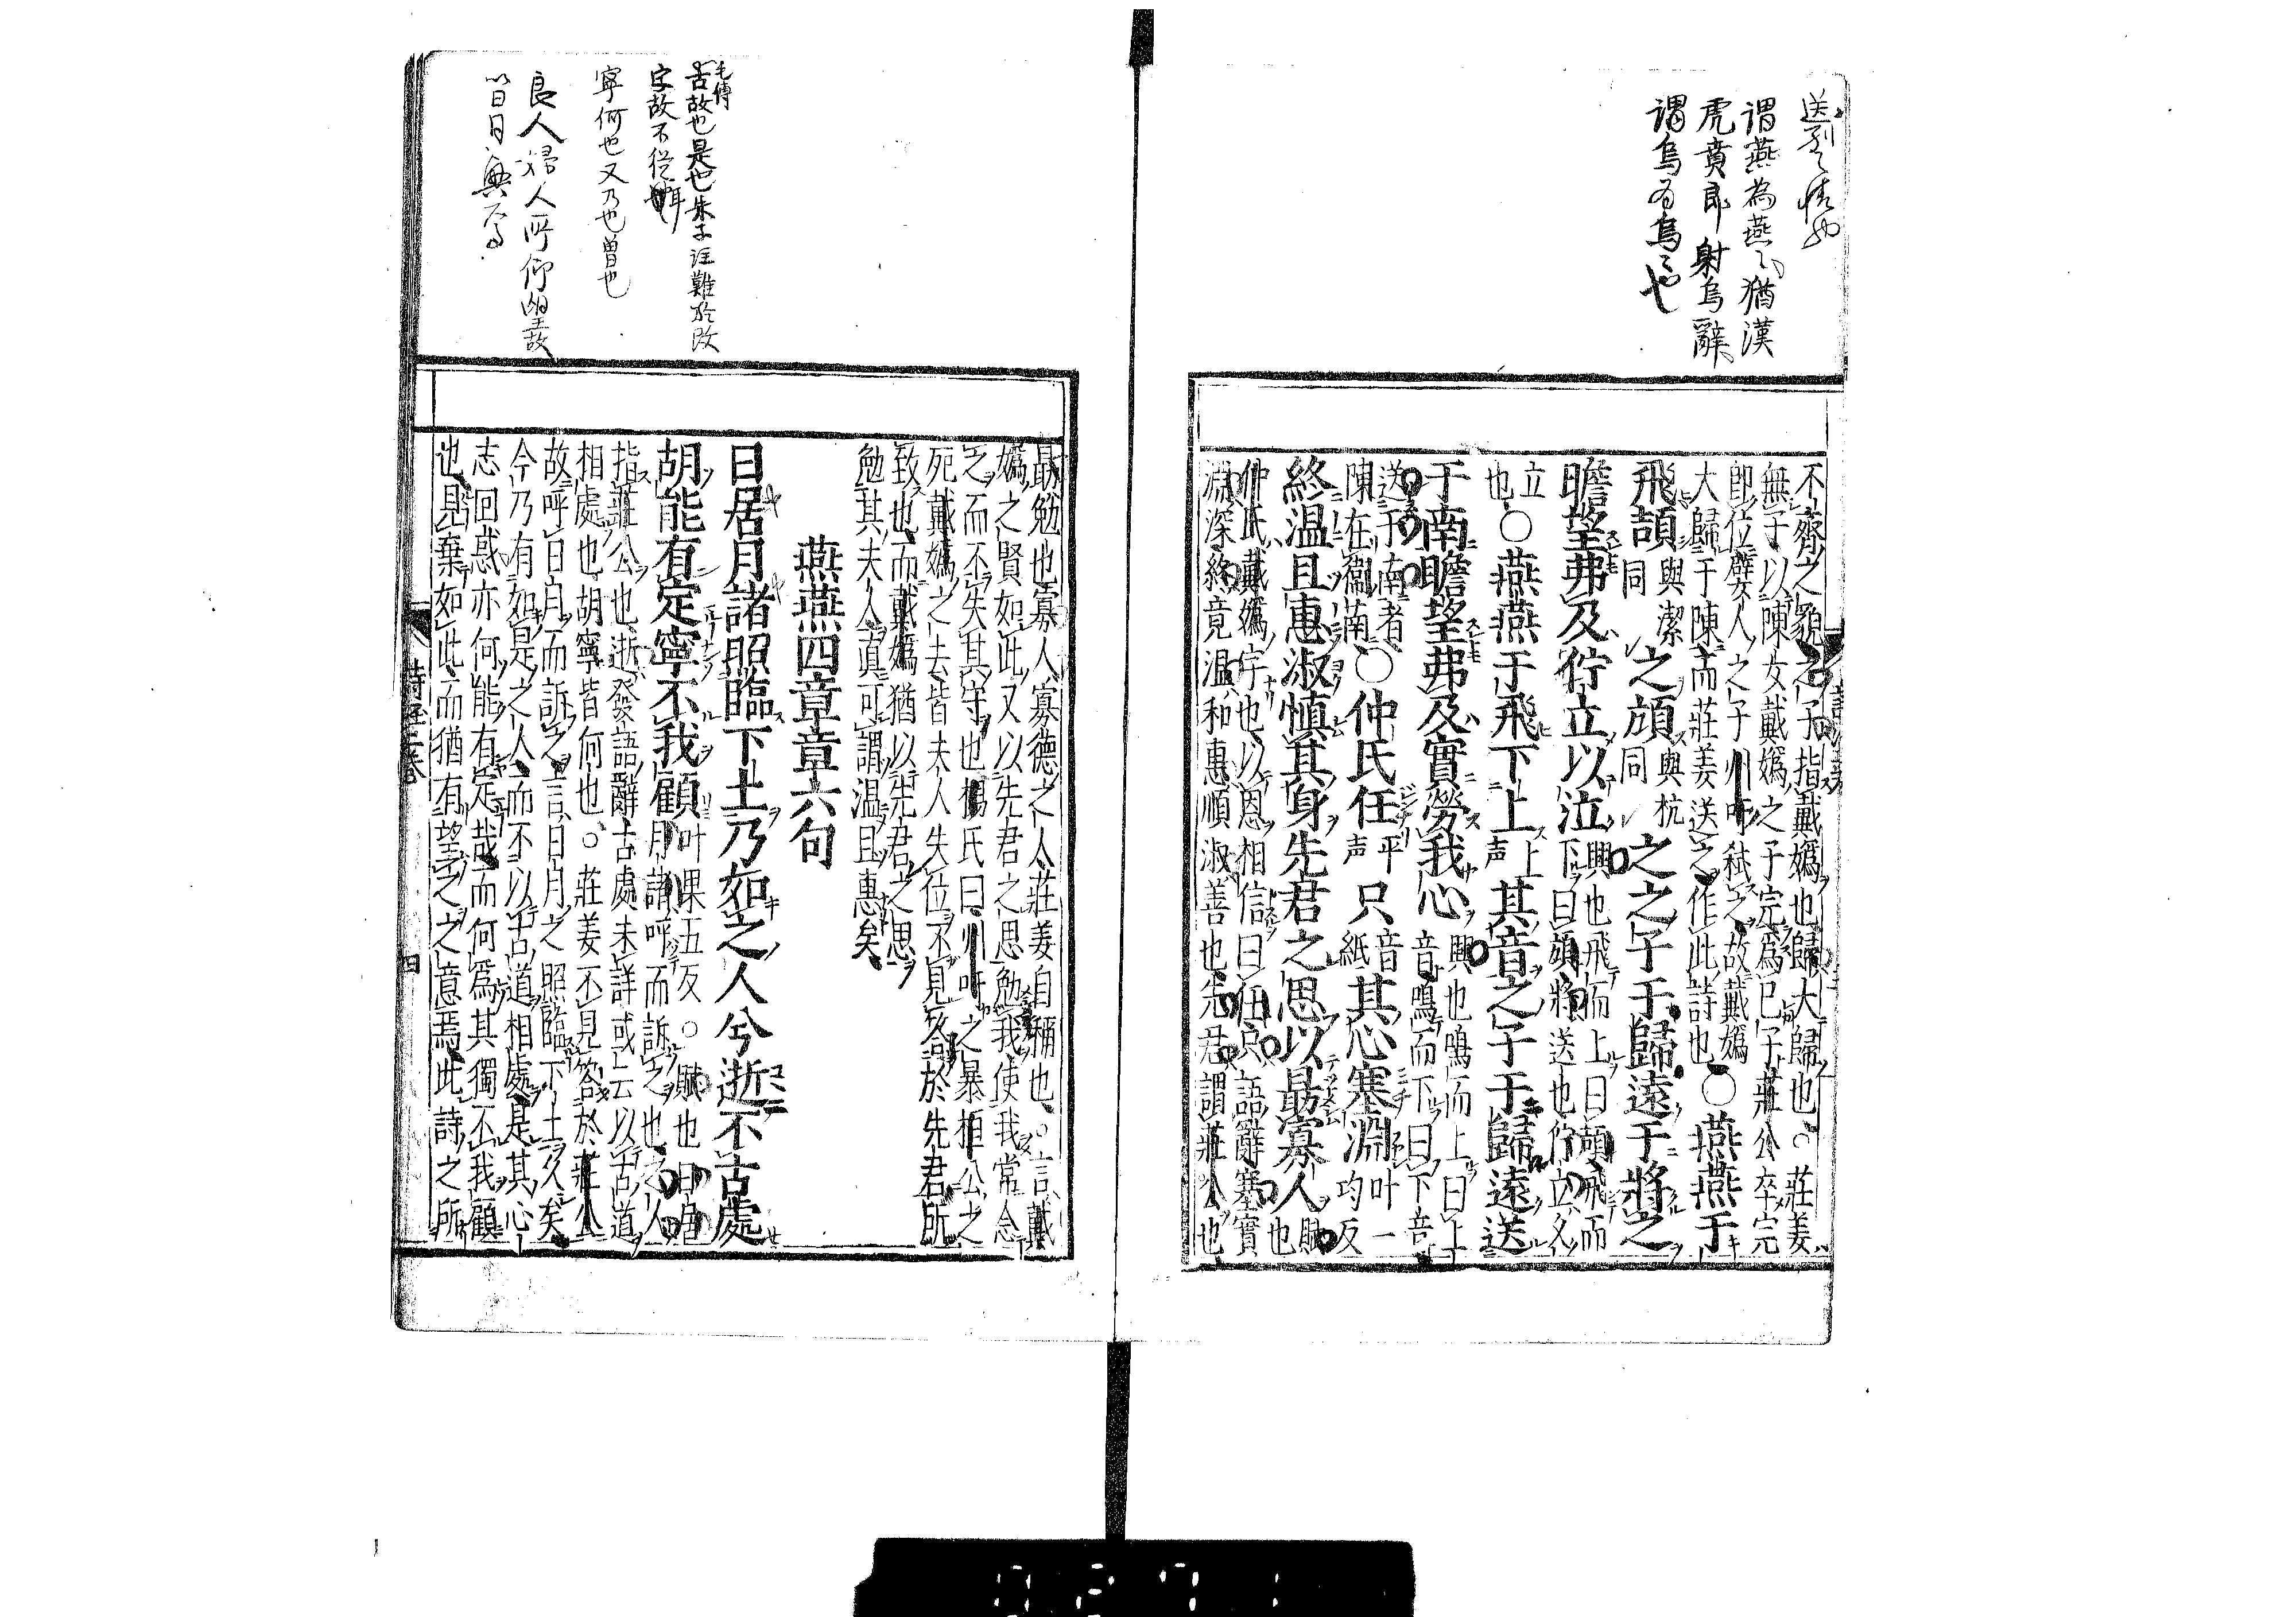 送別之情也
謂燕為燕〻猶漢
虎賁郎射烏辭
謂烏為烏〻也
不齊之貌之子指戴嬀也歸大歸也○莊姜
無子以陳女戴嬀之子完為已子莊公卒完
即位嬖人之子州吁弑之故戴嬀
大歸于陳而莊姜送之作此詩也○燕燕于
飛頡與潔同之頏與杭同之之子于歸遠于將之
瞻望弗及佇立以泣興也飛而上曰頡飛而
下曰頏將送也佇立久
立也○燕燕于飛下上上声其音之子于歸遠送
于南瞻望弗及實勞我心興也鳴而上曰上
音鳴而下曰下音
送于南者
陳在衞南○仲氏任平声只音紙其心塞淵叶一均反
終温且惠淑慎其身先君之思以勗寡人賦也
仲氏戴嬀字也以恩相信曰任只語辭塞實
淵深終竟温和惠順淑善也先君謂莊公也
勗勉也寡人寡德之人莊姜自稱也○言戴
嬀之賢如此又以先君之思勉我使我常念
之而不失其守也楊氏曰州吁之暴桓公之
死戴嬀之去皆夫人失位不見答於先君所
致也而戴嬀猶以先君之思
勉其夫人真可謂温且惠矣
燕燕四章章六句
日居月諸照臨下土乃如之人兮逝不古處
胡能有定寧不我顧叶果五反○賦也日居
月諸呼而訴之也之人
指莊公也逝發語辭古處未詳或云以古道
相處也胡寧皆何也○莊姜不見答於莊公
故呼日月而訴之言日月之照臨下土久矣
今乃有如是之人而不以古道相處是其心
志回惑亦何能有定哉而何為其獨不我顧
也見棄如此而猶有望之之意焉此詩之所
毛傳
古故也是也朱子註難於改
字故不從
寧何也又乃也曽也
良人婦人所仰望故
以日月興焉
詩經
四